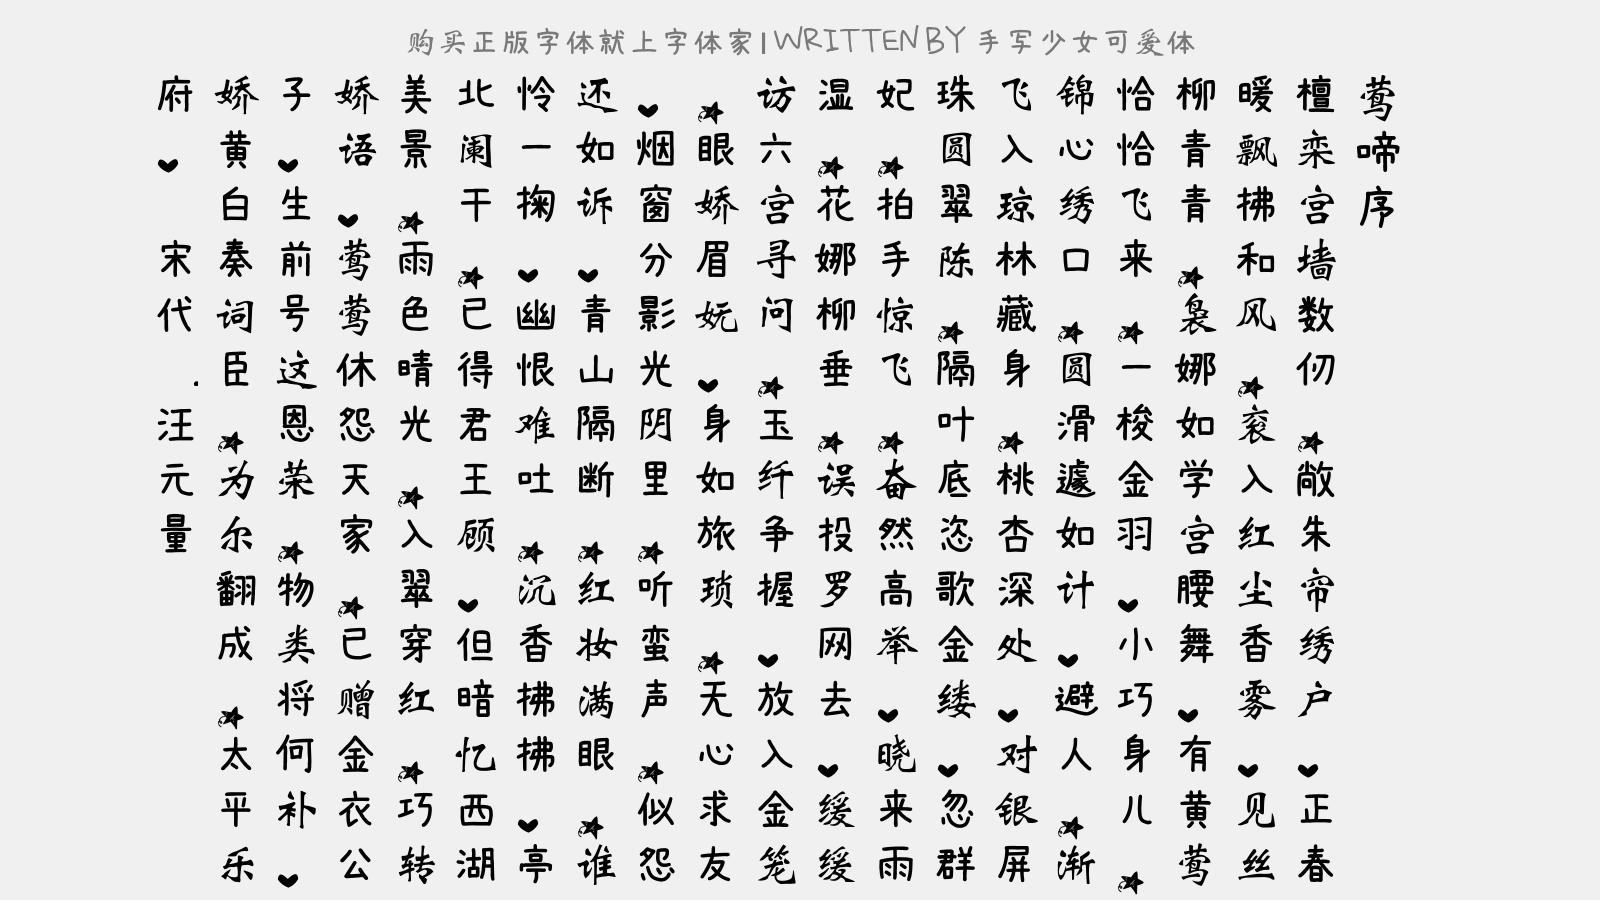 购买正版字体就上字体家|WRITTEN BY 手写少女可爱体
莺啼序
檀栾宫墙数仞★敞朱帘绣户♥正春
暖飘拂和风★衮入红尘香雾♥见丝
柳青青★袅娜如学宫腰舞♥有黄莺
恰恰飞来★一梭金羽♥小巧身儿★
锦心绣口★圆滑遽如计♥避人★渐
飞入琼林藏身★桃杏深处♥对银屏
珠圆翠陈★隔叶底恣歌金缕♥忽群
妃★拍手惊飞★奋然高举♥晓来雨
湿★花娜柳垂★误投罗网去♥缓缓
访六宫寻问★玉纤争握♥放入金笼
★眼娇眉妩♥身如旅琐★无心求友
♥烟窗分影光阴里★听蛮声★似怨
还如诉♥青山隔断★红妆满眼★谁
怜一掬♥幽恨难吐★沉香拂拂♥亭
北阑干★已得君王顾♥但暗忆西湖
美景★雨色晴光★入翠穿红★巧转
娇语♥莺莺休怨天家★已赠金衣公
子♥生前号这恩荣★物类将何补♥
娇黄白奏词臣★为尔翻成★太平乐
府♥宋代.汪元量